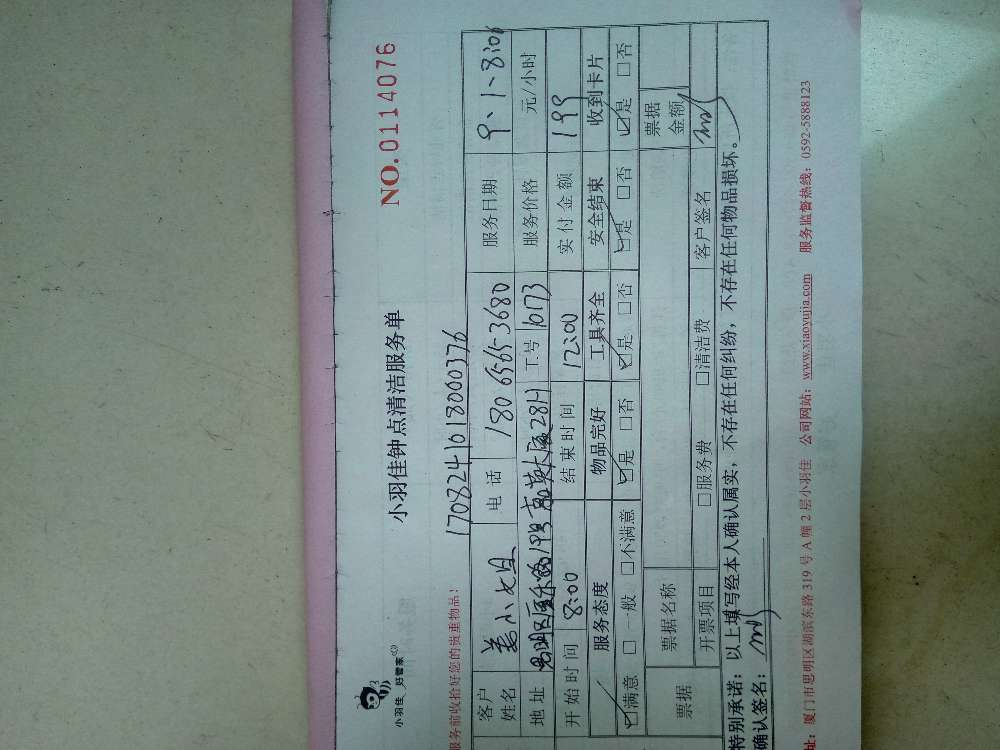 小羽佳 好管家
小羽佳钟点清洁服务单
NO.0114076
1708241018000376
服务前收拾好您的贵重物品!
客户姓名 姜小七旦 电话 180 6565-3680 服务日期 9、1、8:00
地址 28H 工号 10173 服务价格 元/小时
开始时间 8:00 结束时间 12:00 实付金额 199
服务态度 物品完好 工具齐全 安全结束 收到卡片
☑满意 □一般 □不满意 ☑是 □否 ☑是 □否 ☑是 □否 ☑是 □否
票据 票据名称 票据金额
开票项目 □服务费 □清洁费 客户签名
特别承诺: 以上填写经本人确认属实,不存在任何纠纷,不存在任何物品损坏。
确认签名:
址: 厦门市思明区湖滨东路319号A幢2层小羽佳 公司网站: www.xiaoyujia.com 服务监督热线: 0592-5888123